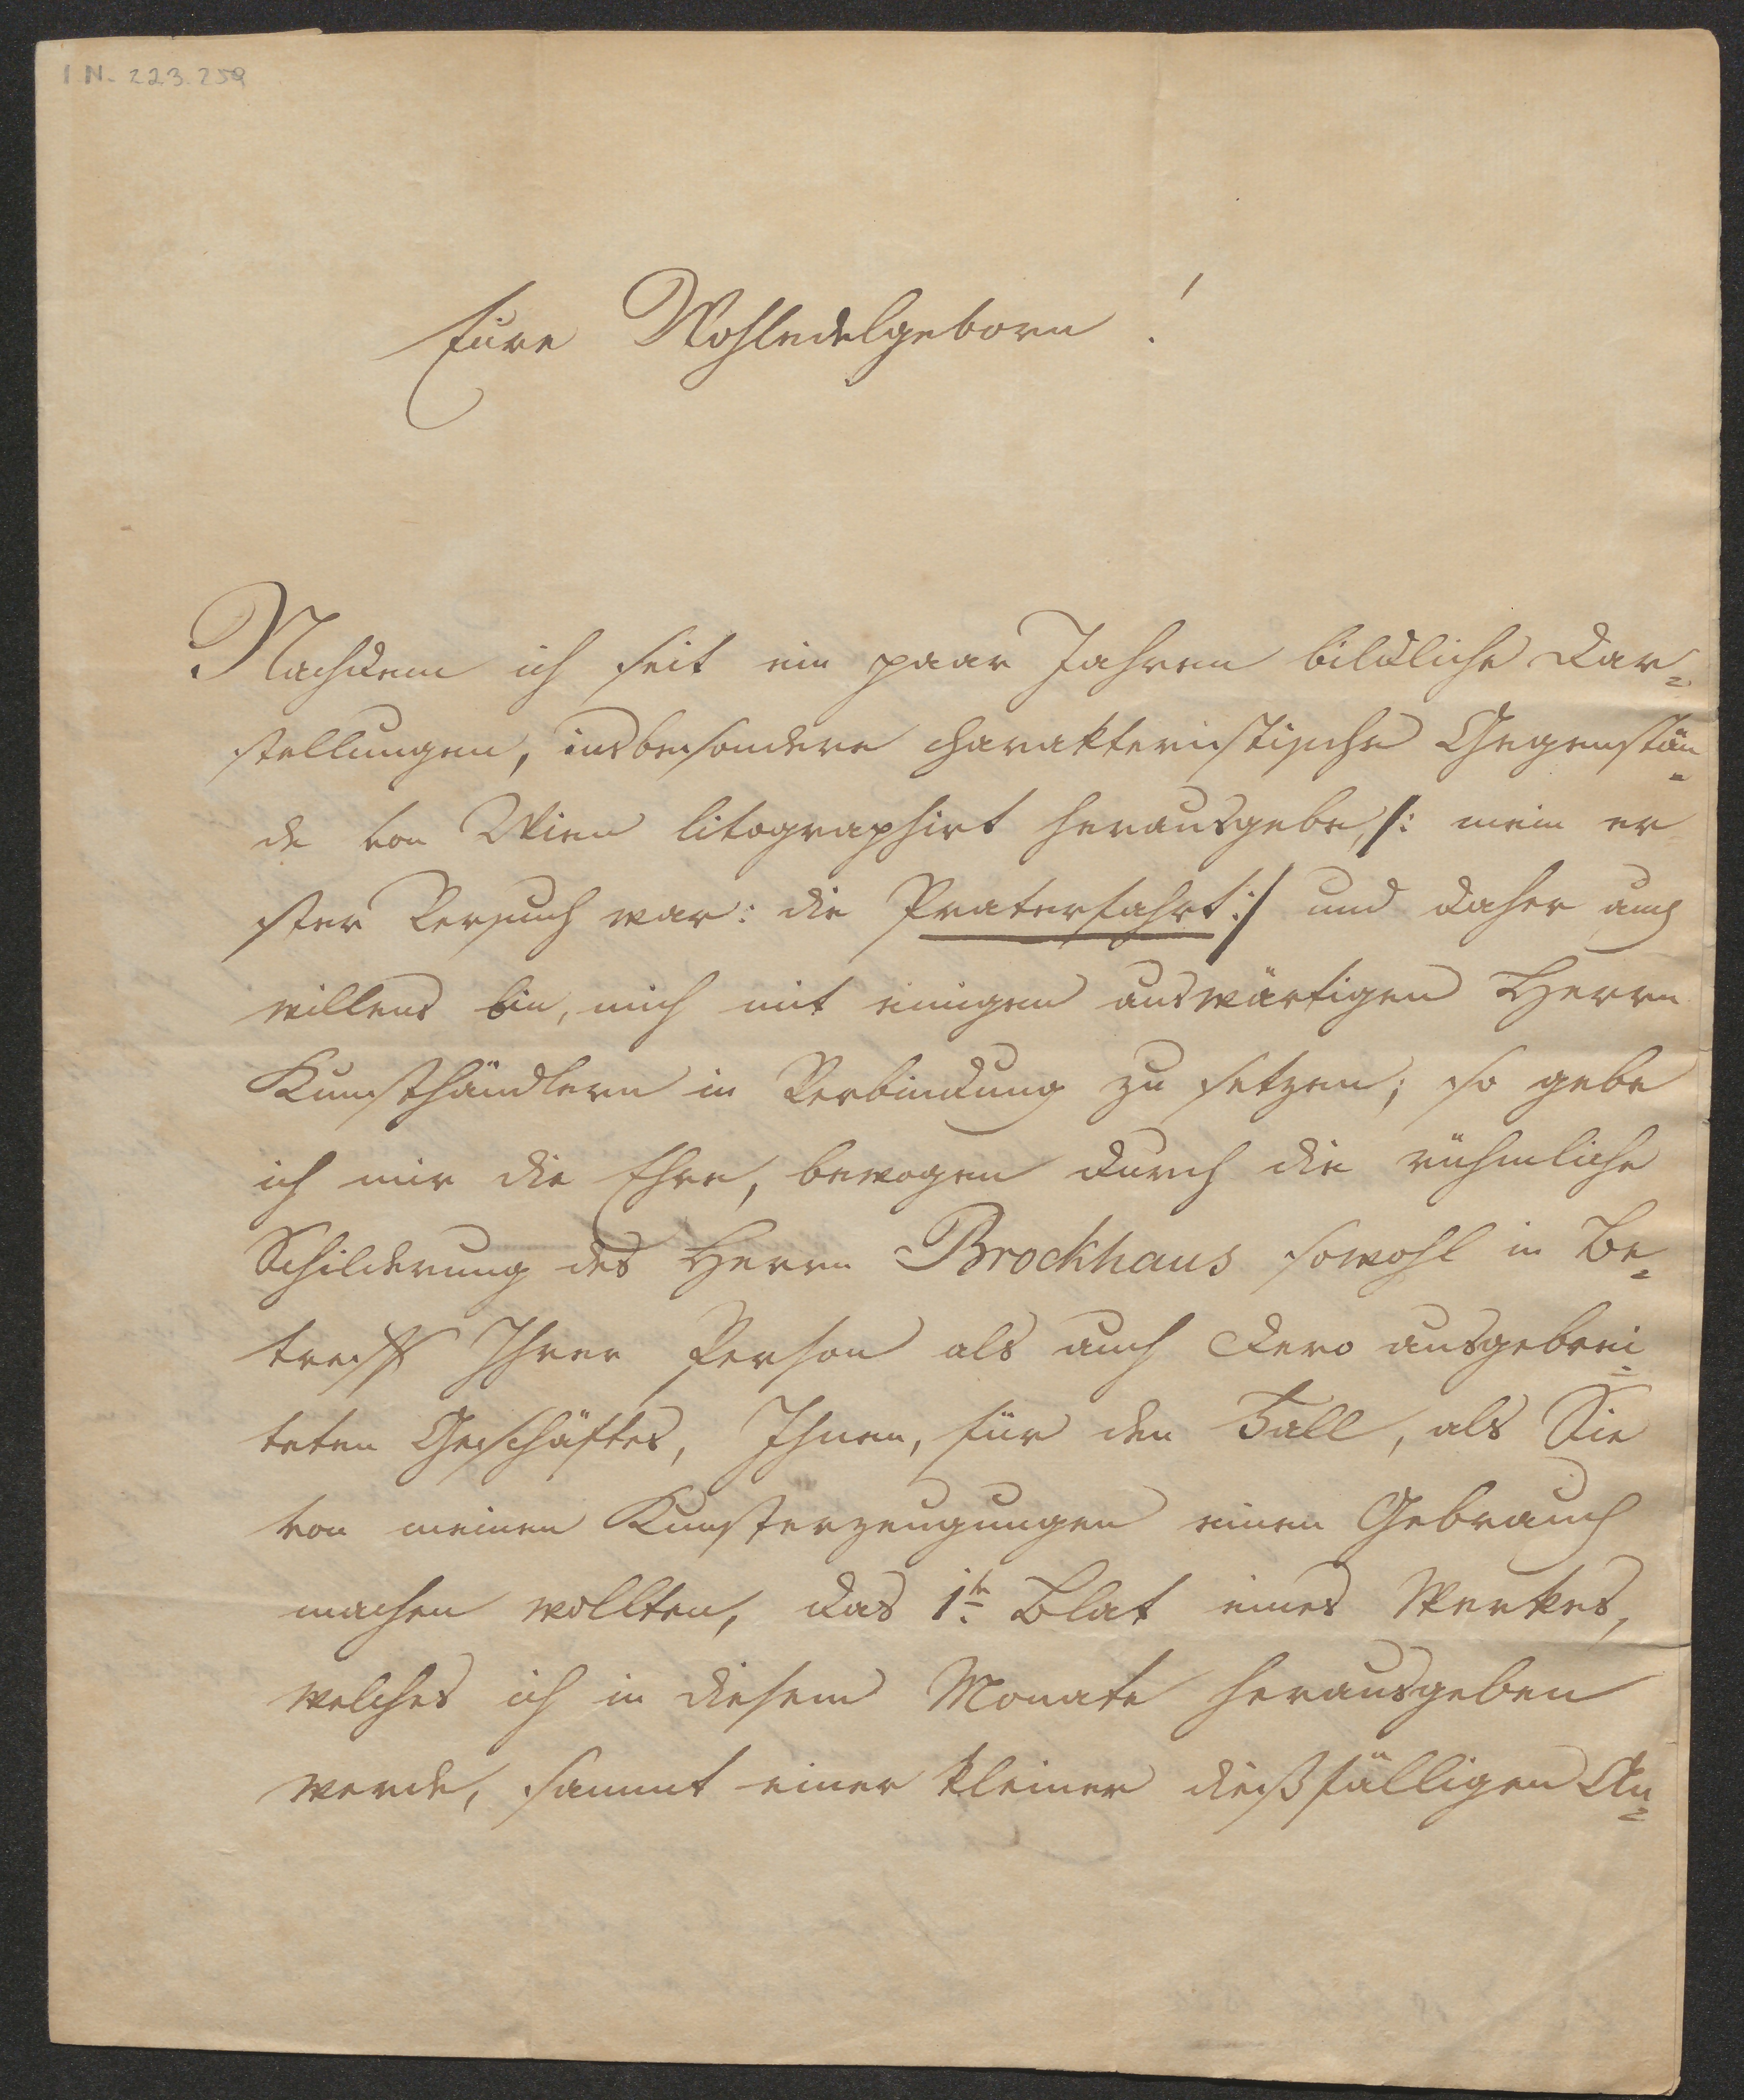 I N. 223.259
Eure Wohledelgeborn!
Nachdem ich seit ein paar Jahren bildliche Dar=
stellungen, insbesondere charakteristische Gegenstän=
de von Wien litographirt herausgebe, /: mein er
ster Versuch war: die Praterfahrt :/ und daher auch
willens bin, mich mit einigen auswärtigen Herrn
Kunsthändlern in Verbindung zu setzen; so gebe
ich mir die Ehre, bewogen durch die rühmliche
Schilderung des Herrn Brockhaus sowohl in Be=
treff Ihrer Person als auch Dero ausgebrei=
teten Geschäftes, Ihnen, für den Fall, als Sie
von meinen Kunsterzeugungen einen Gebrauch
machen wollten, das 1te Blat eines Werkes,
welches ich in diesem Monate herausgeben
werde, sammt einer kleiner dießfälligen An=